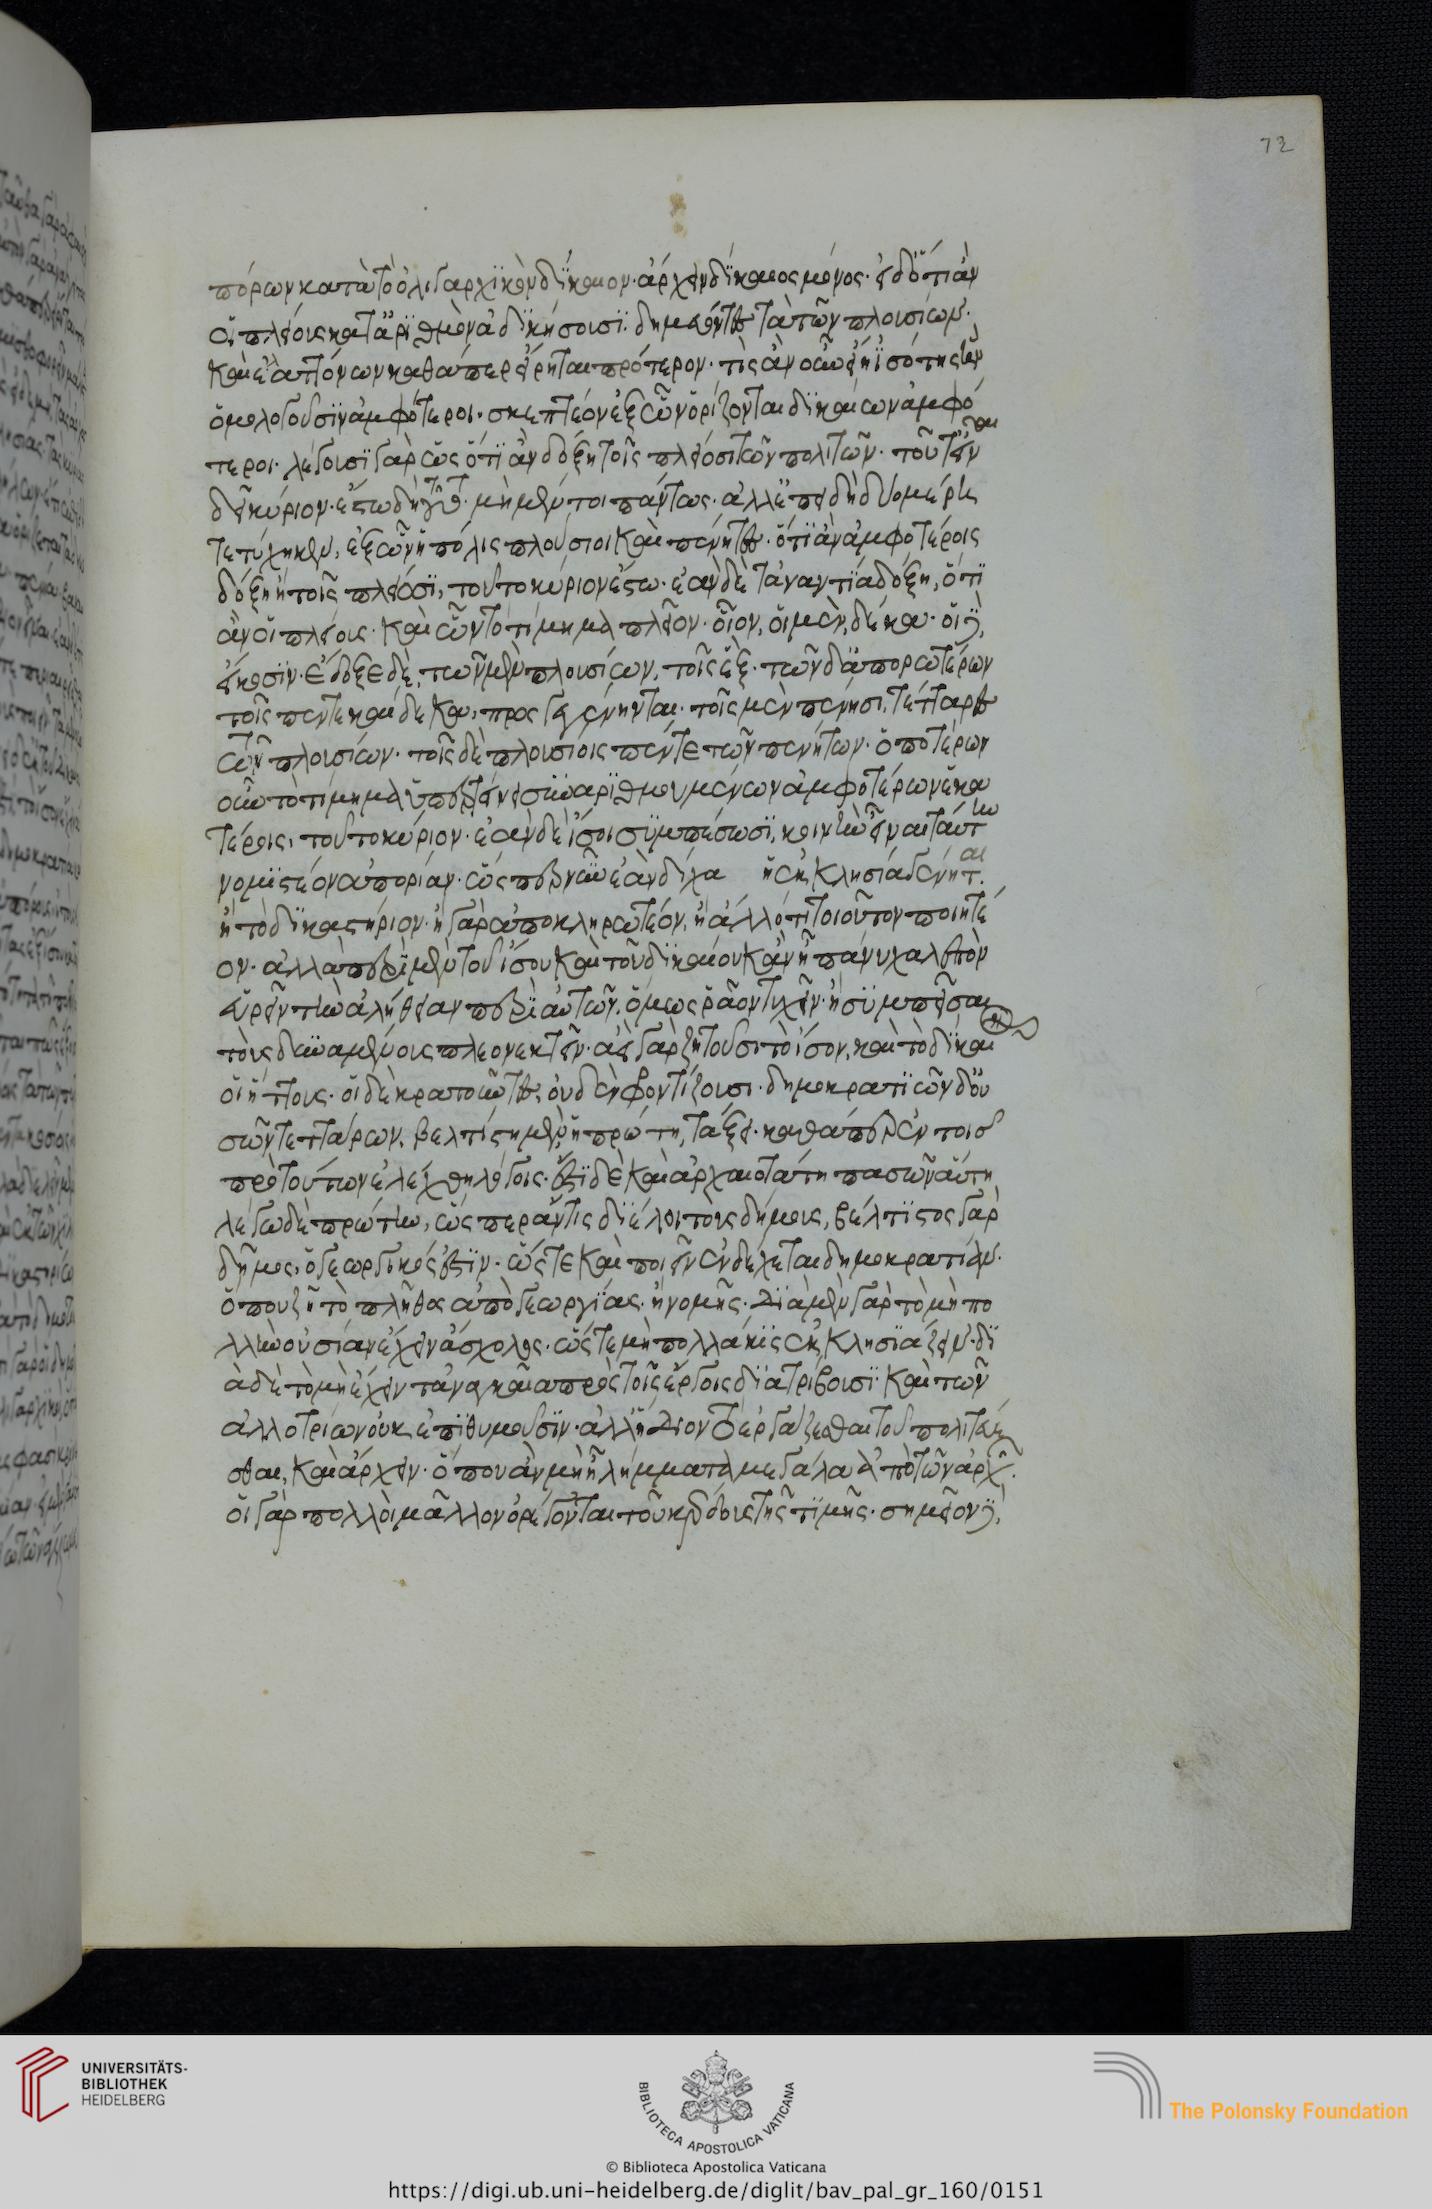 πόρων κατὰ τὸ ὀλιγαρχϊκὸν δΐκαιον· ἄρχειν δΐκαιος μόνος· εἰ δ' ὅτι ἂν
οἵ πλείους κατ' ἀρϊθμὸν ἀδϊκήσουσϊ· δημεύοντες τὰ τῶν πλουσίων·
καὶ ἐλαττόνων καθάπερ εἴρηται πρότερον· τὶς ἂν οὖν εἴη ἰσότης ἣν
ὅμολογοῦσϊν ἀμφότεροι· σκεπτέον ἐξ ὧν ὅρίζονται δϊκαίων ἀμφό
τεροι· λέγουσϊ γὰρ ὥς ὅτϊ ἂν δόξη τοῖς πλείοσι τῶν πολιτῶν· τοῦτ' εἶναι
δεῖ κύριον· ἔστω δὴ τοῦτο· μὴ μέντοι πάντως· ἀλλ' ἐπειδὴ δύο μέρη
τετύχηκεν, ἐξ ὧν ἡ πόλις πλούσιοι καὶ πένητες· ὅτϊ ἂν ἀμφοτέροις
δόξη ἢ τοῖς πλείοσϊ, τοῦτο κύριον ἔστω· ἐὰν δὲ τἀναντΐα δόξη, ὅτϊ
ἂν οἵ πλείους· καὶ ὧν τὸ τίμημα πλεῖον· οἷον, οἵ μὲν, δέκα· οἵ δὲ,
εἴκοσϊν· ἔδοξε δὲ, τῶν μὲν πλουσίων, τοῖς ἕξ· τῶν δ' ἀπορωτέρων
τοῖς πεντεκαίδεκα, προσγεγένηνται· τοῖς μὲν πένησι, τέτταρες
τῶν πλουσίων· τοῖς δὲ πλουσίοις πέντε τῶν πενήτων· ὅποτέρων
οὖν τὸ τίμημα ὕπερτείνει συναρϊθμουμένων ἀμφοτέρων ἕκα
τέροις, τοῦτο κύριον· ἐὰν δὲ ἴσοι συμπέσωσϊ, κοινὴν εἶναι ταύτην
νομϊστέον ἀπορίαν· ὥσπερ νῦν ἐὰν δίχα ἡ ἐκκλησία γένηται.
ἢ τὸ δϊκαστήριον· ἢ γὰρ ἀποκληρωτέον, ἢ ἄλλό τι τοιοῦτον ποιητέ
ον· ἀλλὰ περὶ μὲν τοῦ ἴσου καὶ τοῦ δϊκαίου κἂν ἦ πάνυ χαλεπὸν
εὕρεῖν τὴν ἀλήθειαν περὶ αὐτῶν, ὅμως ῥᾶον τυχεῖν· ἢ συμπεῖσαι
τοὺς δυναμένους πλεονεκτεῖν· ἀεὶ γὰρ ζητοῦσι τὸ ἴσον, καὶ τὸ δΐκαιον
οἵ ἥττους· οἵ δὲ κρατοῦντες, οὐδὲν φροντίζουσι· δημοκρατϊῶν δ' οὐ
σῶν τεττάρων, βελτίστη μὲν ἡ πρώτη, τάξει· καθάπερ ἐν τοῖς
πρὸ τούτων ἐλέχθη λόγοις· ἔστϊ δὲ καὶ ἀρχαιοτάτη πασῶν αὕτη
λέγω δὲ πρώτην, ὥσπερ ἄν τις δϊέλοι τοὺς δήμους, βέλτϊστος γὰρ
δῆμος, ὅ γεωργικός ἐστϊν· ὥστε καὶ ποιεῖν ἐνδέχεται δημοκρατίαν·
ὅπου ζῆ τὸ πλῆθος ἀπὸ γεωργίας· ἢ νομῆς· διὰ μὲν γὰρ τὸ μὴ πο
λλὴν οὐσίαν ἔχειν ἄσχολος· ὥστε μὴ πολλάκϊς ἐκκλησϊάζειν· δϊ
ὰ δὲ τὸ μὴ ἔχειν τἀναγκαῖα πρὸς τοῖς ἔργοις δϊατρίβουσϊ· καὶ τῶν
ἀλλοτρίων οὐκ ἐπϊθυμοῦσϊν· ἀλλ' ἥδιον τὸ ἐργάζεσθαι τοῦ πολιτεύε
σθαι, καὶ ἄρχειν· ὅπου ἂν μὴ ἦ λήμματα μεγάλα ἀπὸ τῶν ἀρχῶν·
οἵ γὰρ πολλοὶ μᾶλλον ὀρέγονται τοῦ κέρδους ἢ τῆς τϊμῆς· σημεῖον δὲ,
72
UNIVERSITÄTS-
BIBLIOTHEK
HEIDELBERG
BIBLIOTECA APOSTOLICA VATICANA
The Polonsky Foundation
© Biblioteca Apostolica Vaticana
https://digi.ub.uni-heidelberg.de/diglit/bav_pal_gr_160/0151